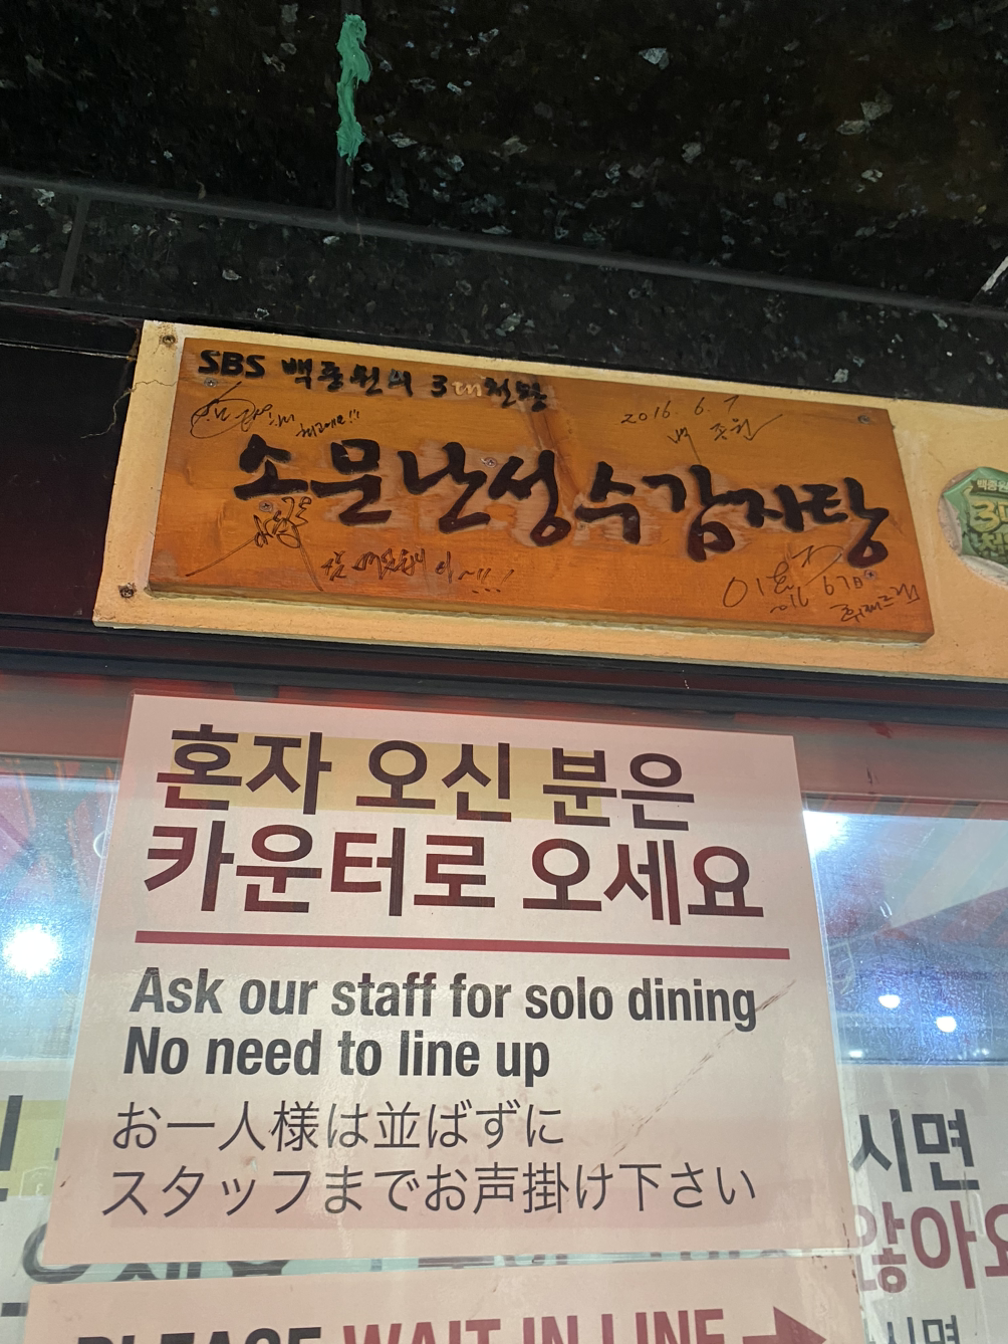 SBS 백종원의 3대천왕
2016. 6. 7
백종원
소문난성수감자탕
혼자 오신 분은
카운터로 오세요
Ask our staff for solo dining
No need to line up
お一人様は並ばずに
スタッフまでお声掛け下さい
시면
않아요
PLEASE WAIT IN LINE
시면